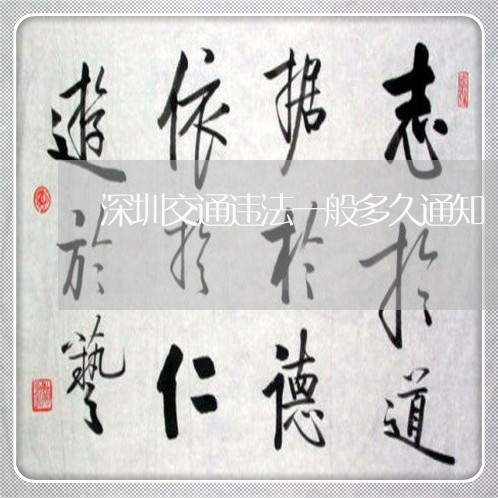 志於道
据於德
依於仁
遊於藝
深圳交通违法一般多久通知